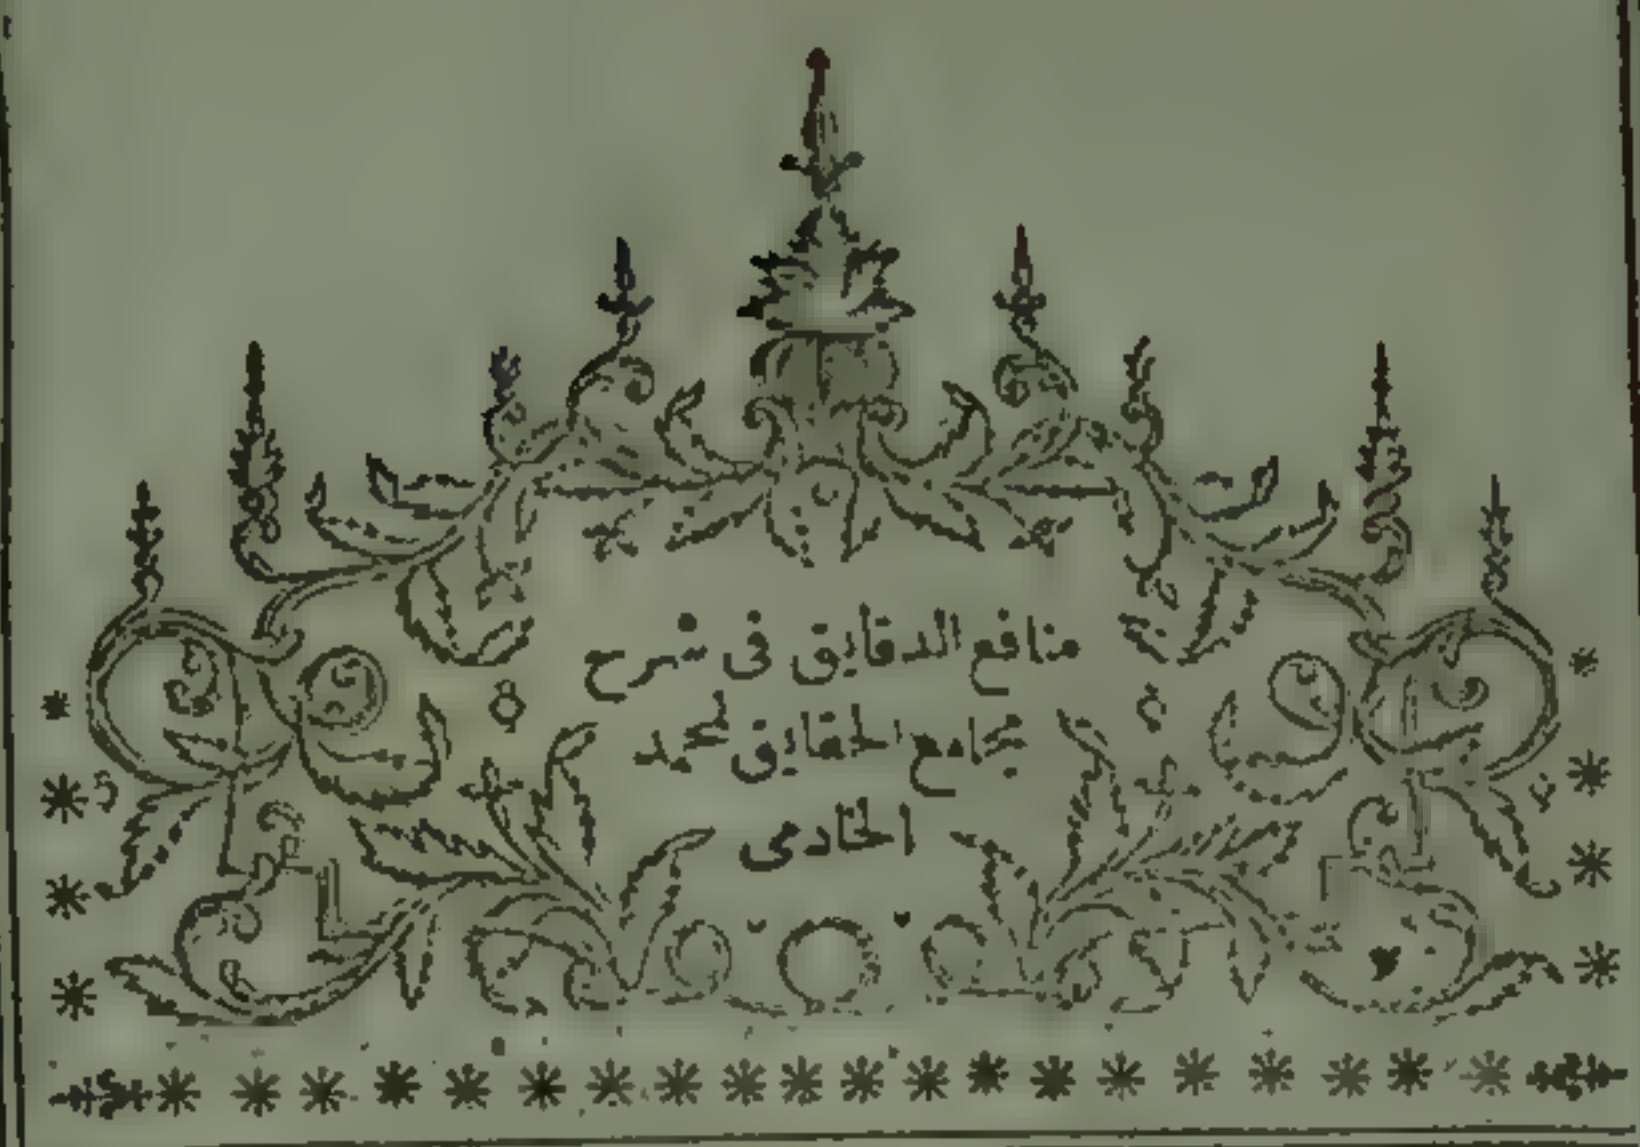 منافع الدقايق فى شرح
مجامع الحقايق لمحمد
الخادمى